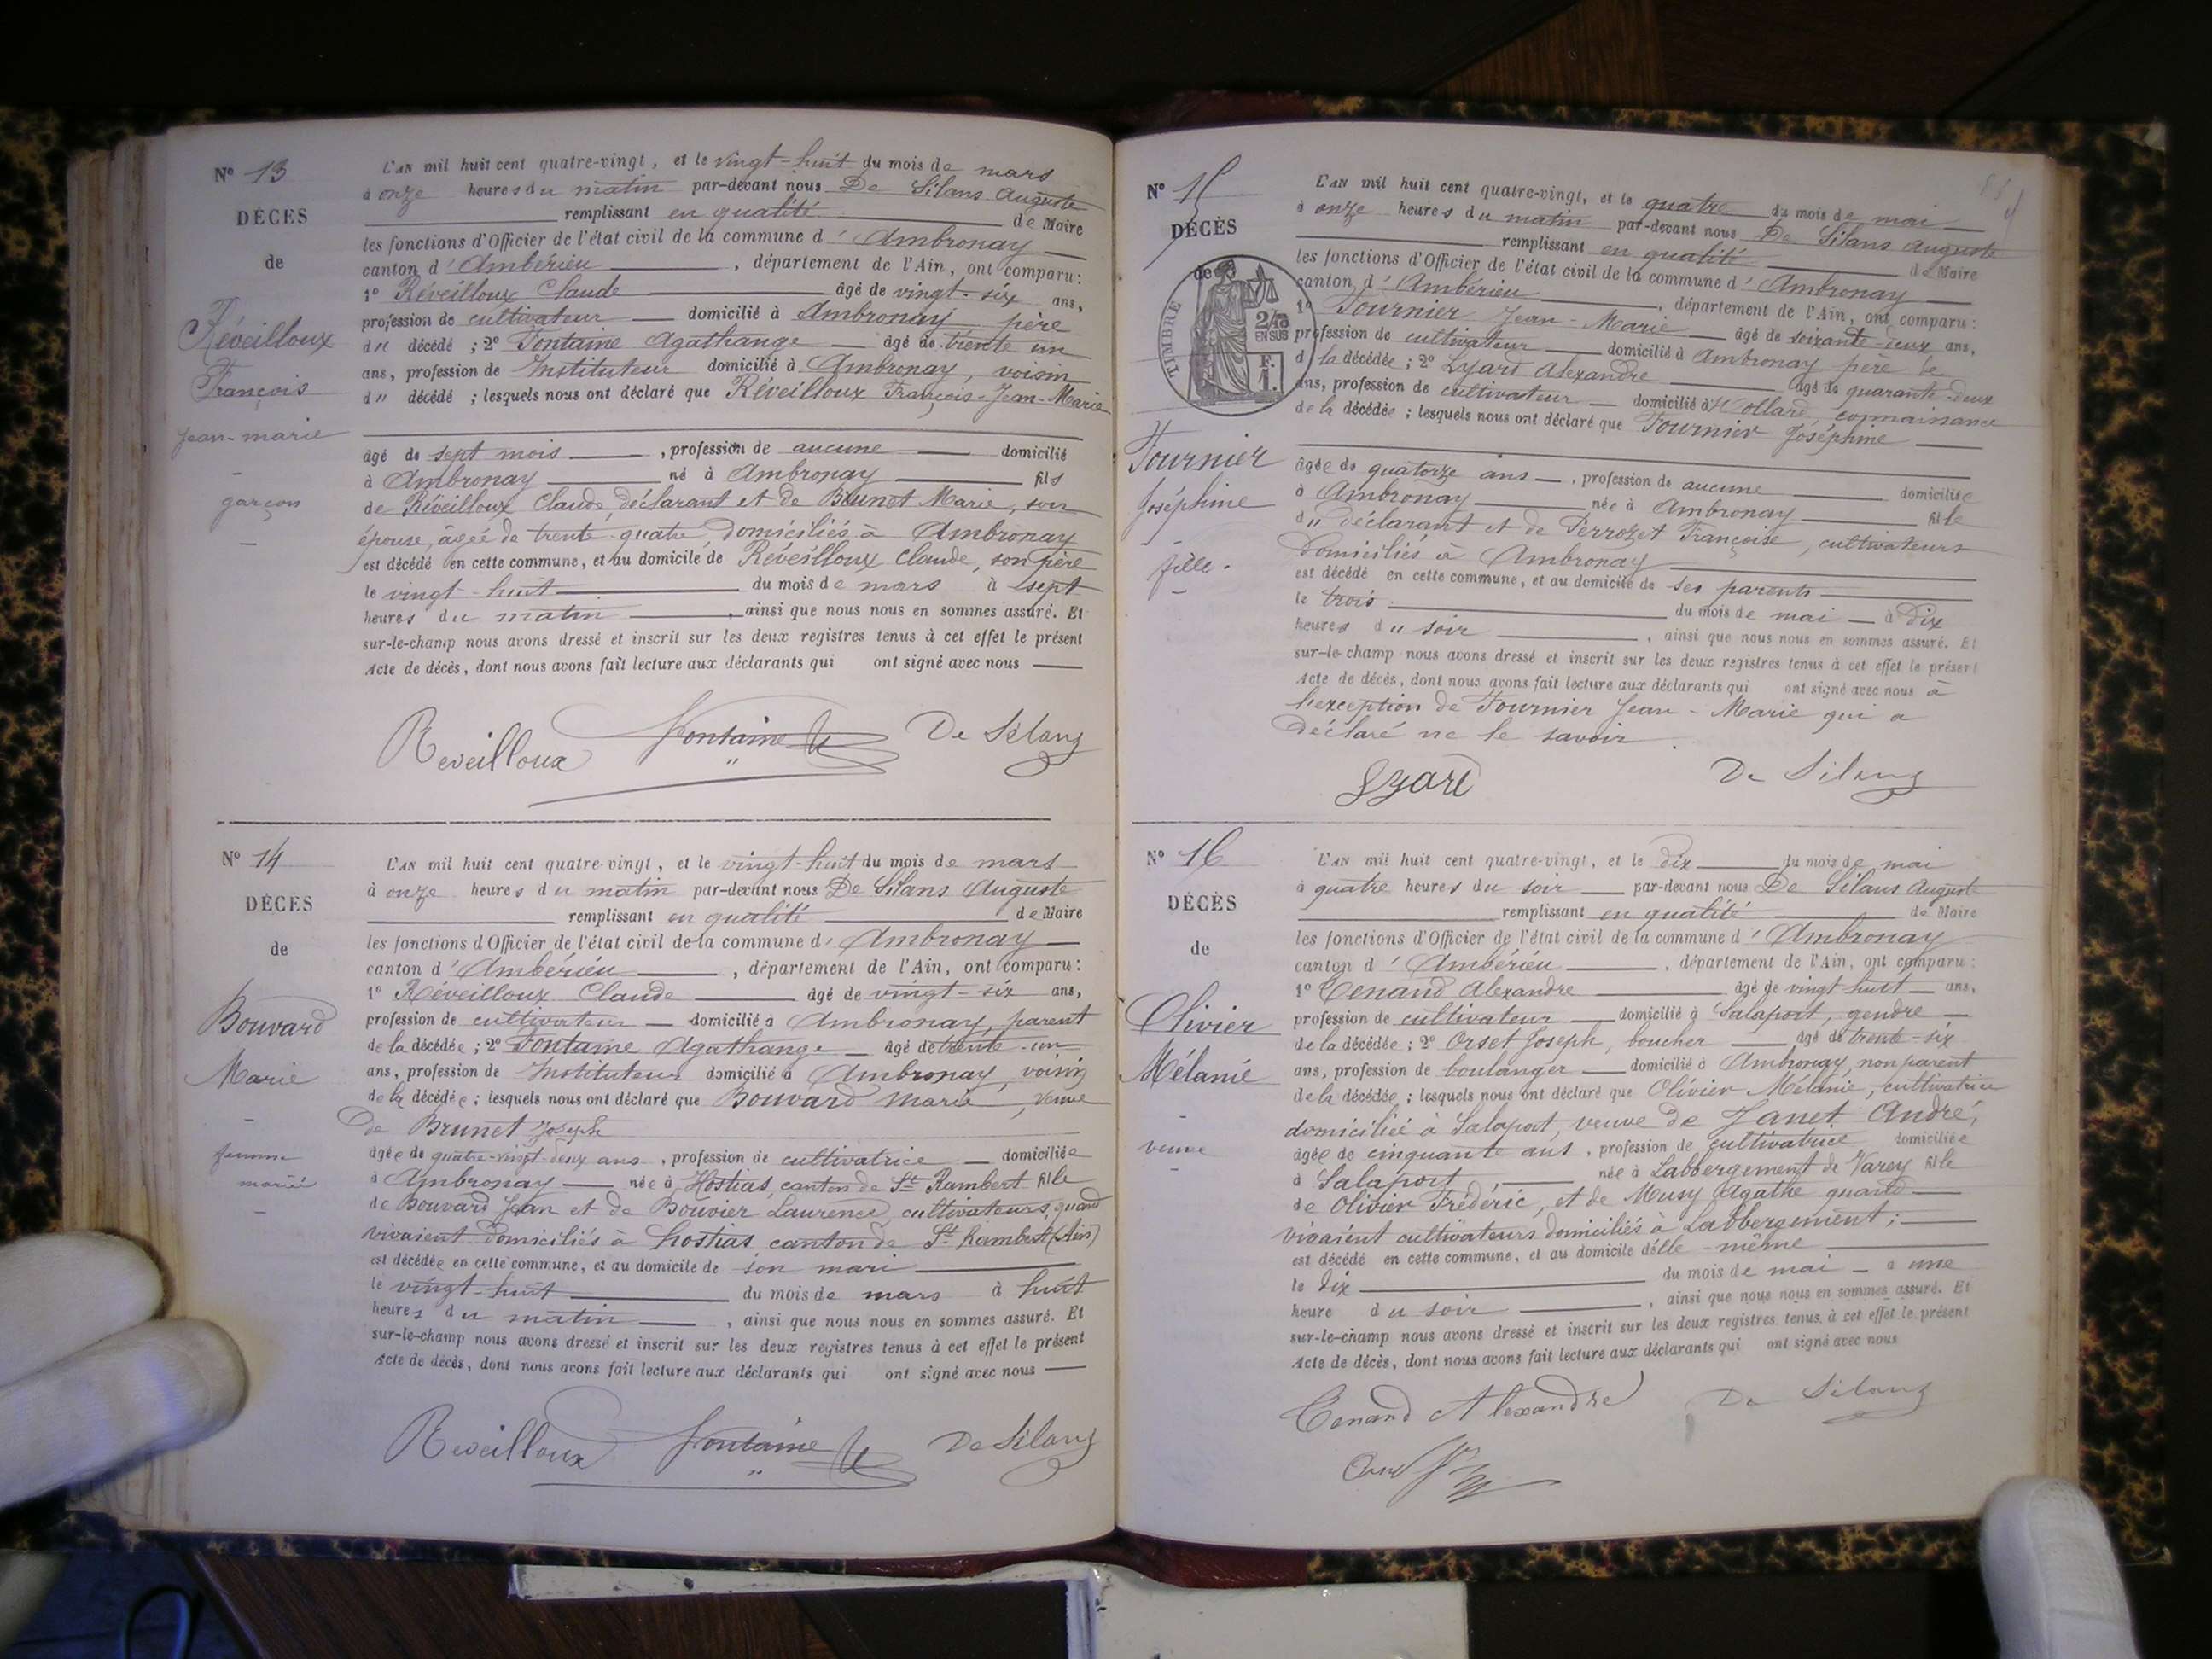 N° 13
DÉCÈS
de
Réveilloux
François
Jean-marie
garçon
L'AN mil huit cent quatre-vingt, et le vingt-huit du mois de mars
à onze heures du matin par-devant nous De Silans Auguste
remplissant en qualité de Maire
les fonctions d'Officier de l'état civil de la commune d'Ambronay
canton d'Ambérieu, département de l'Ain, ont comparu:
1° Réveilloux Claude âgé de vingt-six ans,
profession de cultivateur domicilié à Ambronay père
du décédé; 2° Fontaine Agathange âgé de trente un
ans, profession de Instituteur domicilié à Ambronay, voisin
du décédé; lesquels nous ont déclaré que Réveilloux François-Jean-Marie
âgé de sept mois, profession de aucune domicilié
à Ambronay né à Ambronay fils
de Réveilloux Claude, déclarant et de Brunet Marie, son
épouse, âgée de trente-quatre, domiciliés à Ambronay
est décédé en cette commune, et au domicile de Réveilloux Claude, son père
le vingt-huit du mois de mars à sept
heures du matin, ainsi que nous nous en sommes assuré. Et
sur-le-champ nous avons dressé et inscrit sur les deux registres tenus à cet effet le présent
Acte de décès, dont nous avons fait lecture aux déclarants qui ont signé avec nous
Reveilloux Fontaine De Silans
N° 14
DÉCÈS
de
Bouvard
Marie
femme
mariée
L'AN mil huit cent quatre-vingt, et le vingt-huit du mois de mars
à onze heures du matin par-devant nous De Silans Auguste
remplissant en qualité de Maire
les fonctions d'Officier de l'état civil de la commune d'Ambronay
canton d'Ambérieu, département de l'Ain, ont comparu:
1° Réveilloux Claude âgé de vingt-six ans,
profession de cultivateur domicilié à Ambronay, parent
de la décédée; 2° Fontaine Agathange âgé de trente-un
ans, profession de Instituteur domicilié à Ambronay, voisin
de la décédée; lesquels nous ont déclaré que Bouvard Marie, veuve
de Brunet Joseph
âgée de quatre-vingt-deux ans, profession de cultivatrice domiciliée
à Ambronay née à Hostias, canton de St Rambert fille
de Bouvard Jean et de Bouvier Laurence, cultivateurs, quand
vivaient domiciliés à hostias, canton de St Rambert (Ain)
est décédée en cette commune, et au domicile de son mari
le vingt-huit du mois de mars à huit
heures du matin, ainsi que nous nous en sommes assuré. Et
sur-le-champ nous avons dressé et inscrit sur les deux registres tenus à cet effet le présent
Acte de décès, dont nous avons fait lecture aux déclarants qui ont signé avec nous
Reveilloux Fontaine De Silans
N° 15
DÉCÈS
de
TIMBRE
2/10
EN SUS
F.
1.
Fournier
Joséphine
fille.
L'AN mil huit cent quatre-vingt, et le quatre du mois de mai
à onze heures du matin par-devant nous De Silans Auguste
remplissant en qualité de Maire
les fonctions d'Officier de l'état civil de la commune d'Ambronay
canton d'Ambérieu, département de l'Ain, ont comparu:
1° Fournier Jean-Marie âgé de soixante-deux ans,
profession de cultivateur domicilié à Ambronay père de
d la décédée; 2° Lyard Alexandre âgé de quarante-deux
ans, profession de cultivateur domicilié à Mollard, connaissance
de la décédée; lesquels nous ont déclaré que Fournier Joséphine
âgée de quatorze ans, profession de aucune domiciliée
à Ambronay née à Ambronay fille
du déclarant et de Perrozet Françoise, cultivateurs
domiciliés à Ambronay
est décédé en cette commune, et au domicile de ses parents
le trois du mois de mai à Dix
heures du soir, ainsi que nous nous en sommes assuré. Et
sur-le-champ nous avons dressé et inscrit sur les deux registres tenus à cet effet le présent
Acte de décès, dont nous avons fait lecture aux déclarants qui ont signé avec nous à
l'exception de Fournier Jean-Marie qui a
déclaré ne le savoir.
Lyard De Silans
N° 16
DÉCÈS
de
Olivier
Mélanie
veuve
L'AN mil huit cent quatre-vingt, et le dix du mois de mai
à quatre heures du soir par-devant nous De Silans Auguste
remplissant en qualité de Maire
les fonctions d'Officier de l'état civil de la commune d'Ambronay
canton d'Ambérieu, département de l'Ain, ont comparu:
1° Cenand Alexandre âgé de vingt huit ans,
profession de cultivateur domicilié à Salaport, gendre
de la décédée; 2° Orset Joseph, boucher âgé de trente-six
ans, profession de boulanger domicilié à Ambronay, non parent
de la décédée; lesquels nous ont déclaré que Olivier Mélanie, cultivatrice
domiciliée à Salaport, veuve de Janet André,
âgée de cinquante ans, profession de cultivatrice domiciliée
à Salaport née à Labbergement de Varey fille
de Olivier Frédéric, et de Musy Agathe quand
vivaient cultivateurs domiciliés à Labbergement;
est décédé en cette commune, et au domicile d'elle-même
le dix du mois de mai à une
heure du soir, ainsi que nous nous en sommes assuré. Et
sur-le-champ nous avons dressé et inscrit sur les deux registres tenus à cet effet le présent
Acte de décès, dont nous avons fait lecture aux déclarants qui ont signé avec nous
Cenand Alexandre De Silans